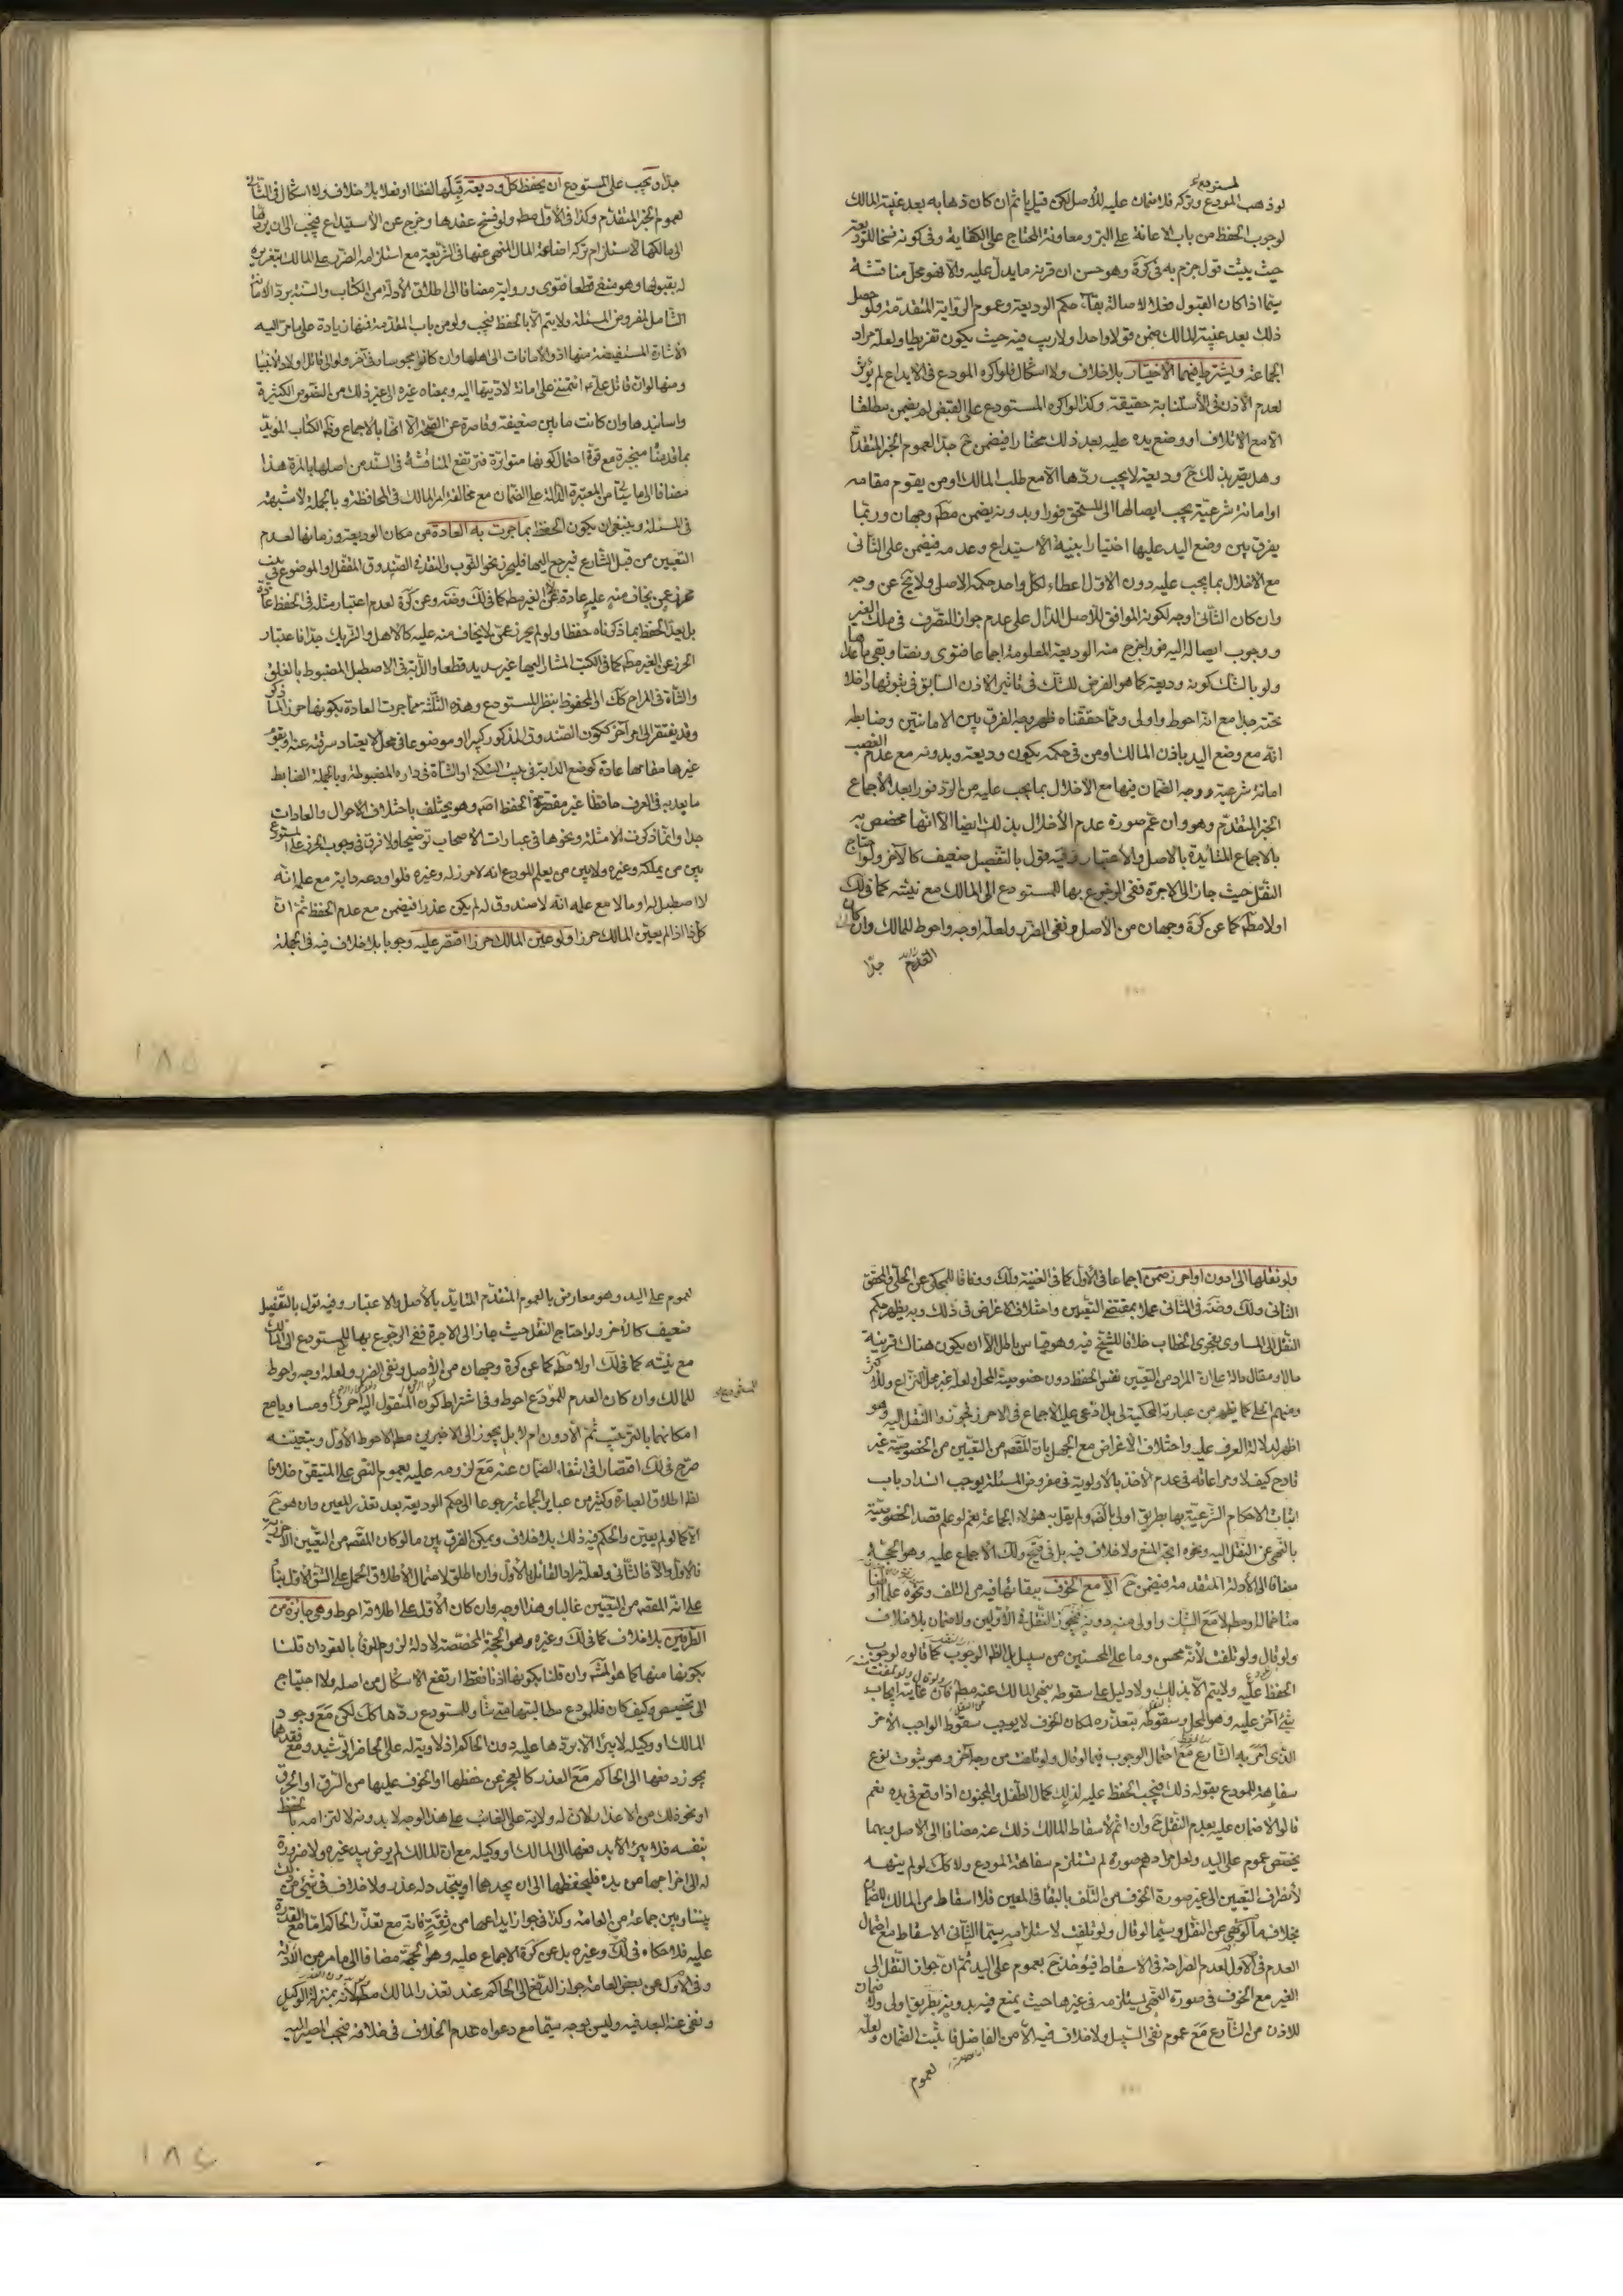 المستودع
لو ذهب المودع وتركه فلا ضمان عليه للأصل لكن قيل يأثم ان كان ذهابه بعد غيبة المالك
لوجوب الحفظ من باب الاعانة على البر ومعاونة المحتاج على الكفاية وفي كونه فسخا للوديعة
حيث يثبت قول جزم به في كرة وهو حسن ان قرينة ما يدل عليه والا فهو محل مناقشة
سيما اذا كان القبول فعلا لاصالة بقاء حكم الوديعة وعموم الرواية المتقدمة ولو حصل
ذلك بعد غيبة المالك ضمن قولا واحدا ولا ريب فيه حيث يكون تفريطا ولعله مراد
الجماعة ويشترط فيهما الاختيار بلا خلاف ولا اشكال فلو اكره المودع في الايداع لم يؤثر
لعدم الأذن في الأستنابة حقيقة وكذا لو اكره المستودع على القبض لم يضمن مطلقا
الا مع الاتلاف او وضع يده عليه بعد ذلك مختارا فيضمن ح جدا لعموم الخبر المتقدم
وهل يصير بذلك ح وديعة لا يجب ردها الا مع طلب المالك او من يقوم مقامه
او امانة شرعية يجب ايصالها الى المستحق فورا وبدونه يضمن مطم وجهان وربما
يفرق بين وضع اليد عليها اختيارا بنية الاستيداع وعدمه فيضمن على الثاني
مع الاخلال بما يجب عليه دون الاول اعطاء لكل واحد حكمه الاصلي ولا يخ عن وجه
وان كان الثاني اوجه لكونه الموافق للأصل الدال على عدم جواز التصرف في ملك الغير
ووجوب ايصاله اليه فورا خرج منه الوديعة المعلومة اجماعا فتوى ونصا وبقي ما عداها
ولو بالشك كونه وديعة كما هو الفرض للشك في تاثير الاذن السابق في ثبوتها داخلا
تحته جدا مع انه احوط واولى ومما حققناه ظهر وجه الفرق بين الامانتين وضابطه
انه مع وضع اليد باذن المالك او من في حكمه يكون وديعة وبدونه مع عدم الغصب
امانة شرعية ووجه الضمان فيها مع الاخلال بما يجب عليه من الرد فورا بعد الأجماع
الخبر المتقدم وهو وان عم صورة عدم الأخلال بذلك ايضا الا انها مخصص به
بالاجماع المتأيدة بالاصل والاعتبار وفيه قول بالتفصيل ضعيف كالآخر ولو احتاج
النقل حيث جاز الى الاجرة ففي الرجوع بها للمستودع الى المالك مع نيته كما في لك
اولا مطم كما عن كرة وجهان من الأصل ونفي الضرر ولعله اوجه واحوط للمالك وان كان
العدم جدا
جدا ويجب على المستودع ان يحفظ كل وديعة قبلها لفظا او فعلا بلا خلاف ولا اشكال في الثاني
لعموم الخبر المتقدم وكذا في الأول مطم ولو فسخ عقدها وخرج عن الأستيداع فيجب الى ان يردها
الى مالكها لاستلزام تركه اضاعة المال المنهي عنها في الشريعة مع استلزامه الضرر على المالك بتغريره
له بقبولها وهو منفي قطعا فتوى ورواية مضافا الى اطلاق الأدلة من الكتاب والسنة برد الامانة
الشامل لمفروض المسئلة ولا يتم الا بالحفظ فيجب ولو من باب المقدمة فمنها زيادة على ما مر اليه
الأشارة المستفيضة منها ادوا الأمانات الى اهلها وان كانوا مجوسا وفي آخر ولو الى قاتل اولاد الأنبيا
ومنها لو ان قاتل علي ائتمنني على امانة لاديتها اليه وبمعناه غيره الى غير ذلك من النصوص الكثيرة
واسانيدها وان كانت ما بين ضعيفة وقاصرة عن الصحة الا انها بالاجماع وظم الكتاب المؤيد
بما قدمنا منجبرة مع قوة احتمال كونها متواترة فترتفع المناقشة في السند من اصلها بالمرة هذا
مضافا الى ما ياتي من المعتبرة الدالة على الضمان مع مخالفة امر المالك في المحافظة وبالجملة لا شبهة
في المسئلة وينبغي ان يكون الحفظ بما جرت به العادة من مكان الوديعة وزمانها لعدم
التعيين من قبل الشارع فيرجع اليها فليحرز نحو الثوب والنقد في الصندوق المقفل او الموضوع في بيت
محرز عن يخاف منه عليه عادة لا عن الغير مطم كما في لك وضة وعن كرة لعدم اعتبار مثله في الحفظ عادة
بل يعد الحفظ بما ذكرناه حفظا ولو لم يحرز عمن لا يخاف منه عليه كالأهل والشريك جدا فاعتبار
الحرز عن الغير مطم كما في الكتب المشار اليها غير سديد قطعا والدابة في الاصطبل المضبوط بالغلق
والشاة في المراح كك او المحفوظ بنظر المستودع وهذه الثلثة مما جرت العادة بكونها حرزا لما ذكر
وقد يفتقر الى امر آخر ككون الصندوق المذكور كبيرا او موضوعا في محل لا يعتاد سرقته عنه ويقوم
غيرها مقامها عادة كوضع الدابة في بيت السكنى او الشاة في داره المضبوطة وبالجملة الضابط
ما يعد به في العرف حافظا غير مقصرة الحفظ اصم وهو يختلف باختلاف الاحوال والعادات
جدا وانما ذكرت الأمثلة ونحوها في عبارات الأصحاب توضيحا ولا فرق في وجوب الحرز على المستودع
بين من يملكه وغيره ولا بين من يعلم المودع انه لا حرز له وغيره فلو اودعه دابة مع علمه انه
لا اصطبل له او مالا مع علمه انه لا صندوق له لم يكن عذرا فيضمن مع عدم الحفظ ثم ان
كل ذا اذا لم يعين المالك حرزا ولو عين المالك حرزا اقتصر عليه وجوبا بلا خلاف فيه في الجملة
ولو نقلها الى ادون او احرز ضمن اجماعا في الأول كما في الغنية ولك ووفاقا للمحكي عن الحلي والمحقق
الثاني ولك وضة في الثاني عملا بمقتضى التعيين واختلاف الاغراض في ذلك وبه يظهر حكم
النقل الى المساوي بفحوى الخطاب خلافا للشيخ فيه وهو قياس باطل الا ان يكون هناك قرينة
حال او مقال دالة على ان المراد من التعيين نفس الحفظ دون خصوصية المحل ولعله غير محل النزاع وللأكثر
ومنهم الحلي كما يظهر من عبارته المحكية لي بل ادعي عليه الأجماع في الاحرز فجوزوا النقل اليه وهو
اظهر لدلالة العرف عليه واختلاف الأغراض مع الجهل بان المقصم من التعيين من الخصوصية غير
قادح كيف لا ومراعاته في عدم الأخذ بالأولوية في مفروض المسئلة يوجب انسداد باب
اثبات الاحكام الشرعية بها بطريق اولى بالمرة ولم يقل به هؤلاء الجماعة نعم لو علم قصد الخصوصية
بالنهي عن النقل اليه ونحوه اتجه المنع ولا خلاف فيه بل في تنقيح ولك الأجماع عليه وهو الحجة
مضافا الى الأدلة المتقدمة فيضمن ح الا مع الخوف ببقائها فيه من التلف ونحوه علما او ظنا
متاخما له او مطم لا مع الشك واولى منه بدونه فيجوز النقل في الأولين ولا ضمان بلا خلاف
ولو قال ولو تلفت لأنه محسن وما على المحسنين من سبيل بل الظم الوجوب كما قالوه لوجوب
الحفظ عليه ولا يتم الا بذلك ولا دليل على سقوطه بنهي المالك عنه مطم فان غايته ايجاب
شيء آخر عليه وهو المحل وسقوطه بتعذره لمكان الخوف لا يوجب سقوط الواجب الاخر
الذي امر به الشارع مع احتمال الوجوب فيما لو قال ولو تلفت من وجه آخر وهو ثبوت نوع
سفاهة للمودع بقوله ذلك فيجب الحفظ عليه لذلك كمال الطفل والمجنون اذا وقع في يده نعم
قالوا لا ضمان عليه بعدم النقل ح وان اثم لأسقاط المالك ذلك عنه مضافا الى الاصل وبهما
يختص عموم على اليد ولعل مرادهم صورة لم تستلزم سفاهة المودع ولا كك لو لم ينهه
لأنصراف التعيين الى غير صورة الخوف من التلف بالبقا في المعين فلا اسقاط من المالك للضمان
بخلاف ما لو نهى عن النقل وسيما لو قال ولو تلفت لاستلزامه سيما الثاني الاسقاط مع احتمال
العدم في الأول لعدم الصراحة في الاسقاط فيؤخذ ح بعموم على اليد ثم ان جواز النقل الى
الغير مع الخوف في صورة النهي يستلزمه في غيرها حيث يمنع فيه بدونه بطريق اولى ولا ضمان
للاذن من الشارع مع عموم نفي السبيل ولا خلاف فيه الا من الفاضل فاثبت الضمان ولعله
لعموم
لعموم على اليد وهو معارض بالعموم المتقدم المتأيد بالأصل والاعتبار وفيه قول بالتفصيل
ضعيف كالأخر ولو احتاج النقل حيث جاز الى الاجرة ففي الرجوع بها للمستودع الى المالك
مع نيته كما في لك اولا مطم كما عن كرة وجهان من الأصل ونفي الضرر ولعله اوجه واحوط
للمالك وان كان العدم للمودع احوط وفي اشتراط كون المنقول اليه احرز او مساويا مع
امكانهما بالترتيب ثم الأدون ام لا بل يجوز الى الاخيرين مطم الاحوط الأول وبتعيينه
صرح في لك اقتصارا في انتفاء الضمان عنه مع لزومه عليه بعموم النص على المتيقن خلافا
لظم اطلاق العبارة وكثير من عباير الجماعة رجوعا الى حكم الوديعة بعد تعذر المعين وان هو ح
الا كما لو لم يعين والحكم فيه ذلك بلا خلاف ويمكن الفرق بين ما لو كان المقصم من التعيين الاحرزية
فالأول والا فالثاني ولعله مراد القائل بالأول وان اطلق لاحتمال الأطلاق الحمل على الشق الأول بناء
على انه المقصم من التعيين غالبا وهذا اوجه وان كان الأول على اطلاقه احوط وهي جائزة من
الطرفين بلا خلاف كما في لك وغيره وهو الحجة المخصصة لادلة لزوم الوفا بالعقود ان قلنا
بكونها منها كما هو المشم وان قلنا بكونها اذنا فقط ارتفع الاشكال من اصله ولا احتياج
الى تخصيص وكيف كان فللمودع مطالبتها متى شاء وللمستودع ردها كك لكن مع وجود
المالك او وكيله لا يبرأ الا بردها عليه دون الحاكم اذ لا ولاية له على الحاضر الرشيد ومع فقدهما
يجوز دفعها الى الحاكم مع العذر كالعجز عن حفظها او الخوف عليها من السرق او الحرق
او نحو ذلك من الاعذار لان له ولاية على الغائب على هذا الوجه لا بدونه لالتزامه بالحفظ
بنفسه فلا يبرأ الا بدفعها الى المالك او وكيله مع ان المالك لم يرض بيد غيره ولا ضرورة
له الى اخراجها من يده فليحفظها الى ان يجدها او يتجدد له عذر ولا خلاف في شيء من ذلك
بيننا وبين جماعة من العامة وكذا في جواز ايداعها من ثقة فانه مع تعذر الحاكم اما مع القدرة
عليه فلا حكاه في لك وغيره بل عن كرة الاجماع عليه وهو الحجة مضافا الى ما مر من الأدلة
وفي الأول عن بعض العامة جواز الدفع الى الحاكم عند تعذر المالك مطم لأنه بمنزلة الوكيل
ونفى عنه البعد فيه وليس بوجه سيما مع دعواه عدم الخلاف في خلافه فيجب المصير اليه